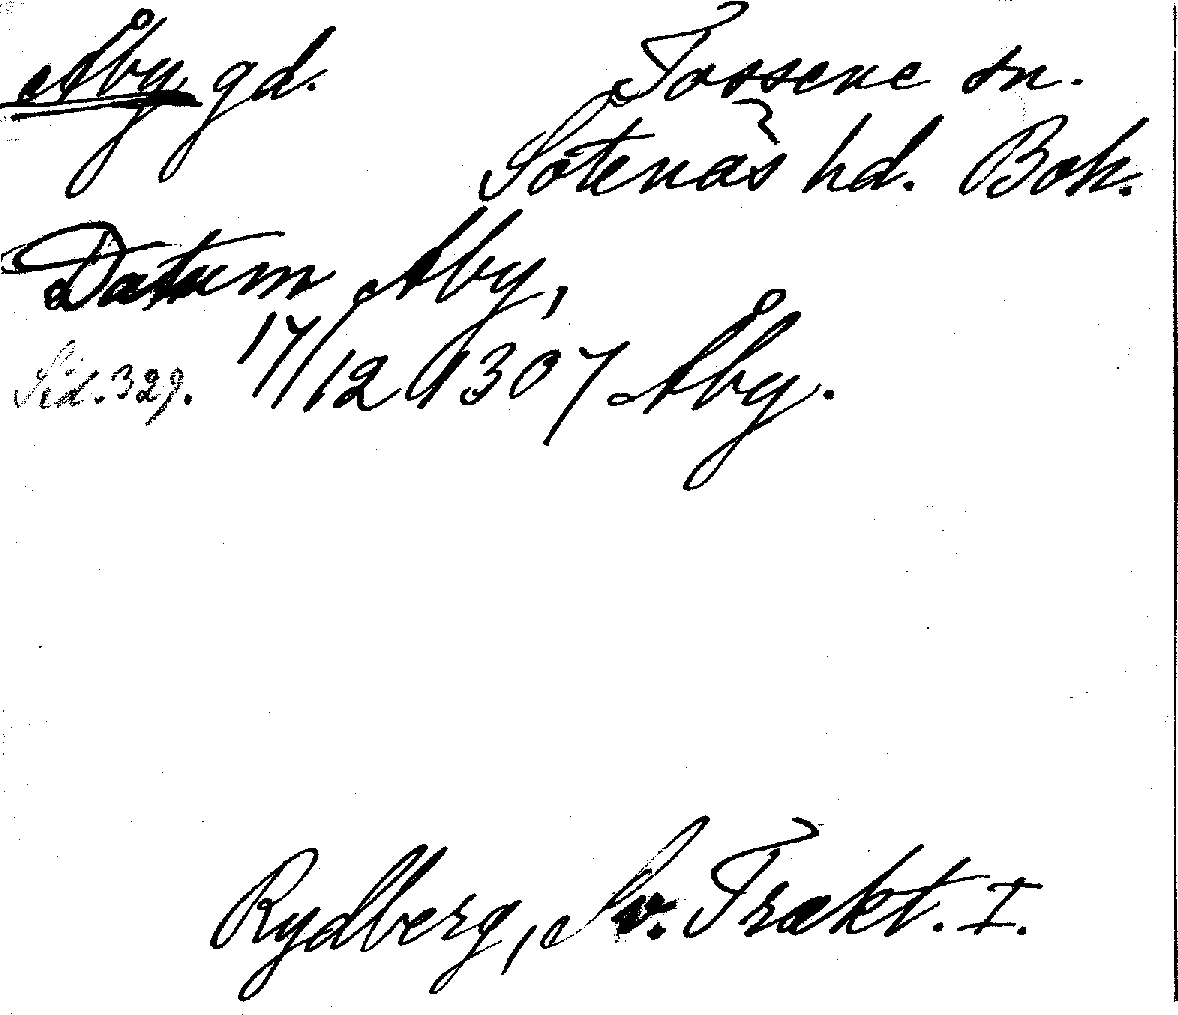 Åby, gd. Tossene sn.
Sotenäs hd. Boh.
Datum Aby,
17/12 1307 Åby.
Sid. 329.
Rydberg, Sv. Trakt. I.